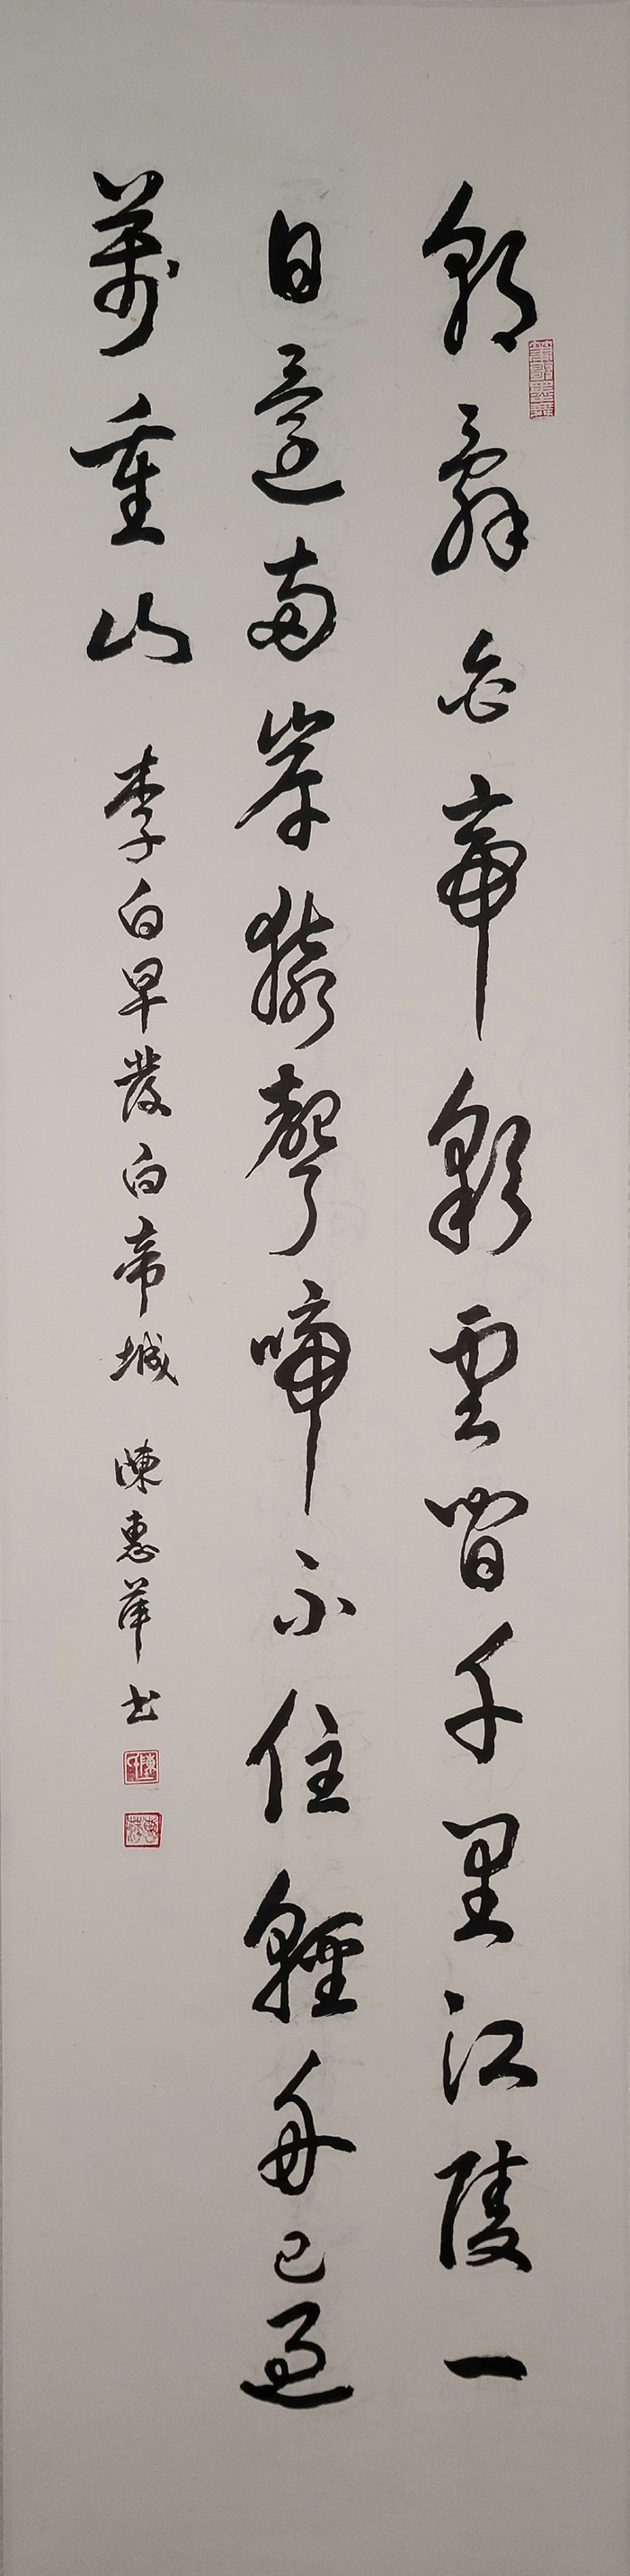 朝辭白帝彩雲間千里江陵一
日還兩岸猿聲啼不住輕舟已過
萬重山 李白早發白帝城 陳惠萍书